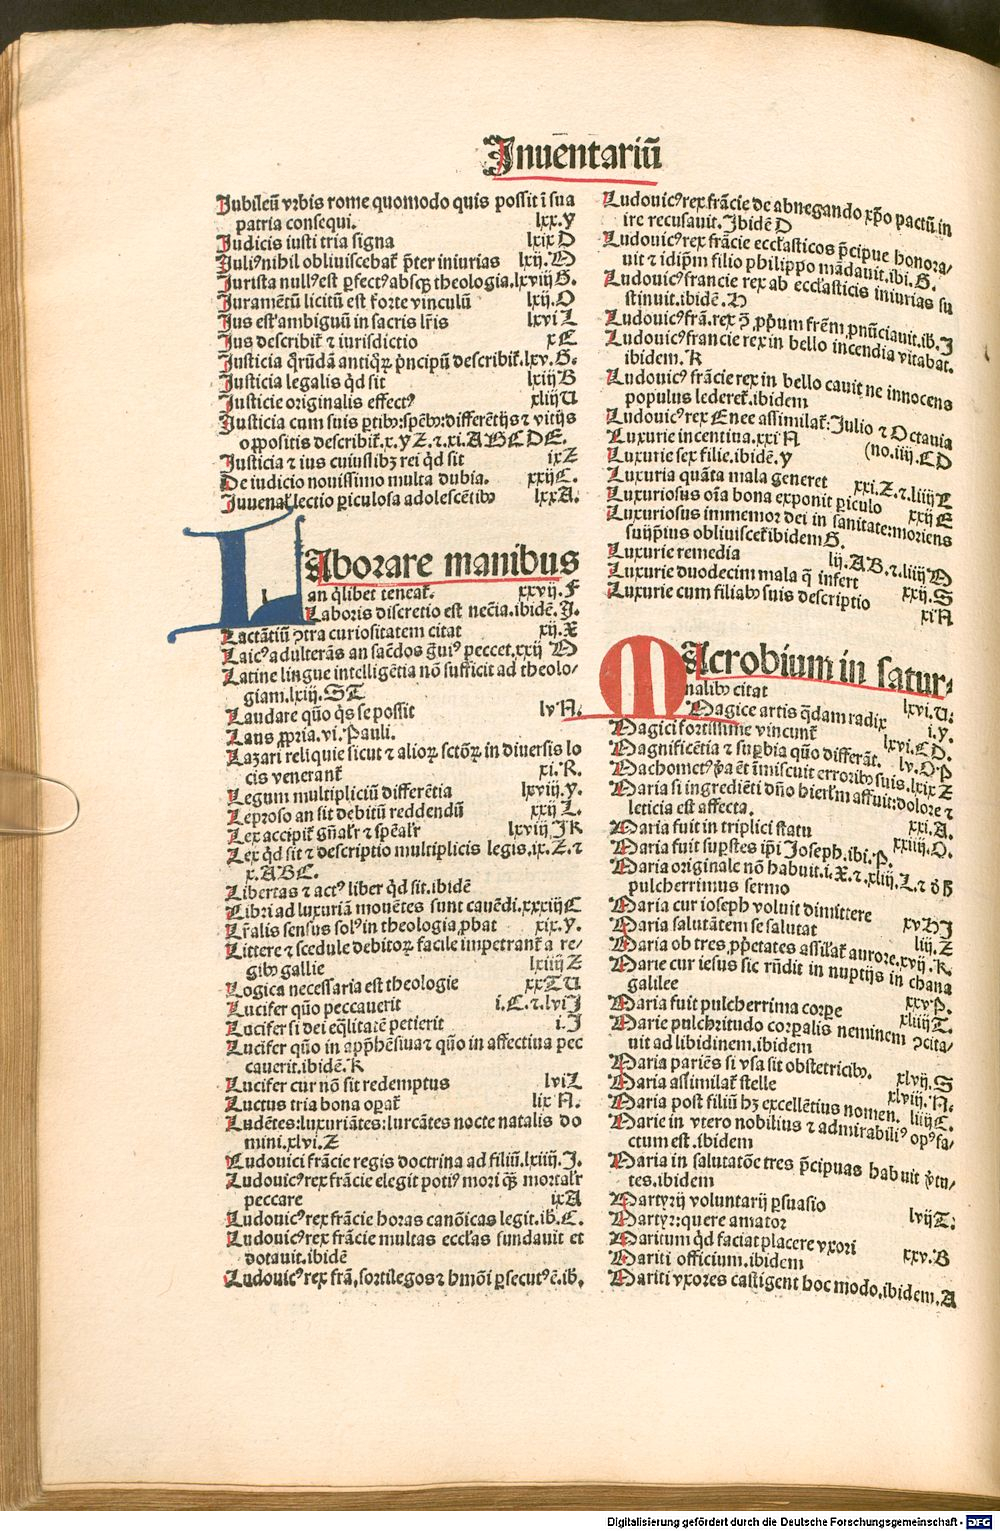 Inuentariū
Jubileū vrbis rome quomodo quis possit ī sua
patria consequi. lxx.y
Judicis iusti tria signa lxix D
Juliꝰ nihil obliuiscebat̄ p̄ter iniurias lxij.M
Jurista nullꝰ est ꝑfectꝰ absqꝫ theologia.lxviij G.
Juramētū licitū est forte vinculū lxij.O
Jus est ambiguū in sacris lr̄is lxvi L
Jus describit̄ ⁊ iurisdictio x E
Justicia q̄rūdā antiqꝝ p̄ncipū describit̄.lxv.G.
Justicia legalis qd̄ sit lxiij B
Justicie originalis effectꝰ xliij U
Justicia cum suis ꝑtibꝰ:spēbꝰ:differētijs ⁊ vitijs
oppositis describit̄.x.y Z.⁊.xi.A B C D E.
Justicia ⁊ ius cuiuslibꝫ rei qd̄ sit ix Z
De iudicio nouissimo multa dubia. xxij C.
Juuenal̄ lectio ꝑiculosa adolescētibꝰ lxx A.
LAborare manibus
an q̄libet teneat̄. xxvij.F
Laboris discretio est nec̄ia.ibidē.J.
Lactātiū ↄtra curiositatem citat xij.X
Laicꝰ adulterās an sac̄dos ḡuiꝰ peccet.xxij M
Latine lingue intelligētia nō sufficit ad theolo/
giam.lxiij.S T
Laudare quō q̄s se possit lv N.
Laus ꝓpria.vi.Pauli.
Lazari reliquie sicut ⁊ alioꝝ sctōꝝ in diuersis lo
cis venerant̄ xi.R.
Legum multipliciū differētia lxviij.y.
Leproso an sit debitū reddendū xxij L.
Lex accipit̄ gn̄alr̄ ⁊ spēalr̄ lxviij J K
Lex qd̄ sit ⁊ descriptio multiplicis legis.ix.Z.⁊
x.A B C.
Libertas ⁊ actꝰ liber qd̄ sit.ibidē
Libri ad luxuriā mouētes sunt cauēdi.xxxiij C
Lr̄alis sensus solꝰ in theologia ꝓbat xix.y.
Littere ⁊ scedule debitoꝝ facile impetrant̄ a re/
gibꝰ gallie lxiiij Z
Logica necessaria est theologie xx T U
Lucifer quō peccauerit i.C.⁊.lvi J
Lucifer si dei eq̄litatē petierit i.J
Lucifer quō in app̄hēsiua ⁊ quō in affectiua pec
cauerit.ibidē.K
Lucifer cur nō sit redemptus lvi L
Luctus tria bona oꝑat̄ lix N.
Ludētes:luxuriātes:lurcātes nocte natalis do
mini.xlvi.Z
Ludouici frācie regis doctrina ad filiū.lxiiij.J.
Ludouicꝰ rex frācie elegit potiꝰ mori qꝫ mortalr̄
peccare ix A
Ludouicꝰ rex frācie horas canōicas legit.ib.C.
Ludouicꝰ rex frācie multas eccl̄as fundauit et
dotauit.ibidē
Ludouicꝰ rex frā.sortilegos ⁊ hmōi ꝑsecutꝰ ē.ib.
Ludouicꝰ rex frācie de abnegando xp̄o pactū in
ire recusauit.Ibidē D
Ludouicꝰ rex frācie eccl̄asticos p̄cipue honora/
uit ⁊ idip̄m filio philippo mādauit.ibi.G.
Ludouicꝰ francie rex ab eccl̄asticis iniurias su
stinuit.ibidē.H
Ludouicꝰ frā.rex ꝯ̄ ꝓp̄um frēm ꝓnūciauit.ib.J
Ludouicꝰ francie rex in bello incendia vitabat.
ibidem.K
Ludouicꝰ frācie rex in bello cauit ne innocens
populus lederet̄.ibidem
Ludouicꝰ rex Enee assimilat̄:Julio ⁊ Octauia
Luxurie incentiua.xxi N (no.iiij.C D
Luxurie sex filie.ibidē.y
Luxuria quāta mala generet xxi.Z.⁊.liiij L
Luxuriosus oīa bona exponit ꝑiculo xxij E
Luxuriosus immemor dei in sanitate:moriens
suijp̄ius obliuiscet̄.ibidem G.
Luxurie remedia lij.A B.⁊.liiij M
Luxurie duodecim mala q̄ infert xxij.S
Luxurie cum filiabꝰ suis descriptio xi N
MAcrobium in satur-
nalibꝰ citat lxvi.U.
Magice artis q̄dam radix i.y.
Magici fortissime vincunt̄ lxvi.C D.
Magnificētia ⁊ suꝑbia quō differāt. lv.O P
Machometꝰ p̄a ēt īmiscuit erroribꝰ suis.lxix Z
Maria si ingrediēti dn̄o hierl̄m affuit:dolore ⁊
leticia est affecta. xxi.A.
Maria fuit in triplici statu xxiiij.O.
Maria fuit suꝑstes ip̄i Joseph.ibi.P.
Maria originale nō habuit.i.X.⁊.xliij.L.⁊ ꝺ̄ ħ
pulcherrimus sermo
Maria cur ioseph voluit dimittere xv H J
Maria salutātem se salutat liij.Z
Maria ob tres ꝓp̄etates assīlat̄ aurore.xvij.K.
Marie cur iesus sic rn̄dit in nuptijs in chana
galilee xxv P.
Maria fuit pulcherrima corꝑe xliij T.
Marie pulchritudo corꝑalis neminem ↄcita/
uit ad libidinem.ibidem
Maria pariēs si vsa sit obstetricibꝰ. xlvij.S
Maria assimilat̄ stelle xlviij.N.
Maria post filiū hꝫ excellētius nomen. liiij C.
Marie in vtero nobilius ⁊ admirabiliꝰ opꝰ fa/
ctum est.ibidem
Maria in salutatōe tres p̄cipuas habuit v̄tu/
tes.ibidem
Martyrij voluntarij ꝑsuasio lvij T.
Martyr:quere amator
Maritum qd̄ faciat placere vxori xxv.B
Mariti officium.ibidem
Mariti vxores castigent hoc modo.ibidem.A
Digitalisierung gefördert durch die Deutsche Forschungsgemeinschaft - DFG